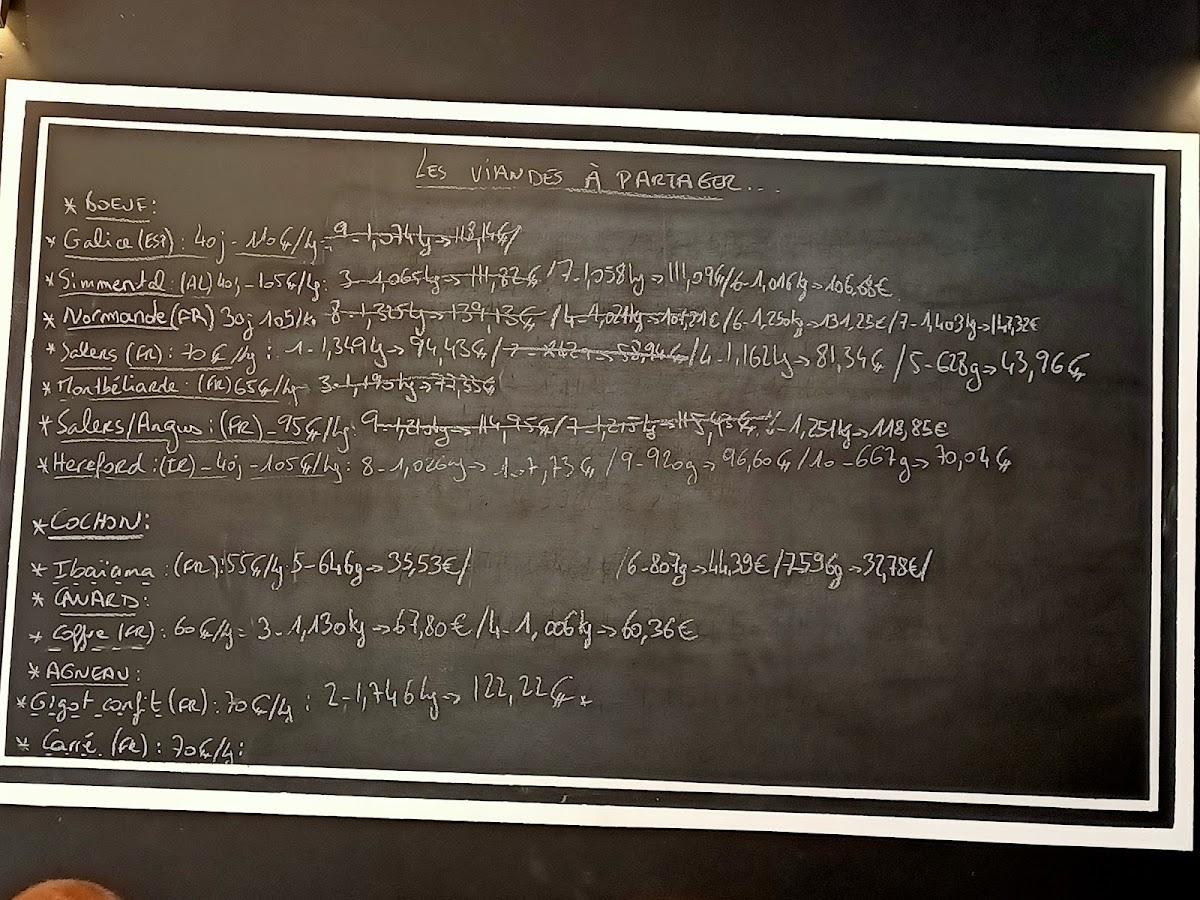 LES VIANDES À PARTAGER...
* BOEUF:
* Galice (ESP): 40j - 110€/kg: 9 - 1,074kg → 118,14€/
* Simmental: (AL) 40j - 105€/kg: 3 - 1,065kg → 111,82€ /7 - 1,058kg → 111,09€/6 - 1,016kg → 106,68€
* Normande (FR) 30j 105/kg 8 - 1,325kg → 139,13€ /4 - 1,021kg → 107,21€ /6 - 1,250kg → 131,25€ /7 - 1,403kg → 147,32€
* Salers (FR): 70€/kg: 1 - 1,349kg → 94,43€ /7 - 842g → 58,94€ /4 - 1,162kg → 81,34€ /5 - 628g → 43,96€
* Montbéliarde: (FR) 65€/kg 3 - 1,190kg → 77,35€
* Salers/Angus: (FR) - 95€/kg: 9 - 1,210kg → 114,95€ /7 - 1,215kg → 115,43€ - 1,251kg → 118,85€
* Hereford: (IR) - 40j - 105€/kg: 8 - 1,026kg → 107,73€ /9 - 920g → 96,60€ /10 - 667g → 70,04€
* COCHON:
* Ibaïama: (FR): 55€/kg 5 - 646g → 35,53€/ /6 - 807g → 44,39€ /7 596g → 32,78€/
* CANARD:
* Coffre (FR): 60€/kg - 3 - 1,130kg → 67,80€ /4 - 1,006kg → 60,36€
* AGNEAU:
* Gigot confit (FR): 70€/kg: 2 - 1,746kg → 122,22€ *
* Carré (FR): 70€/kg: